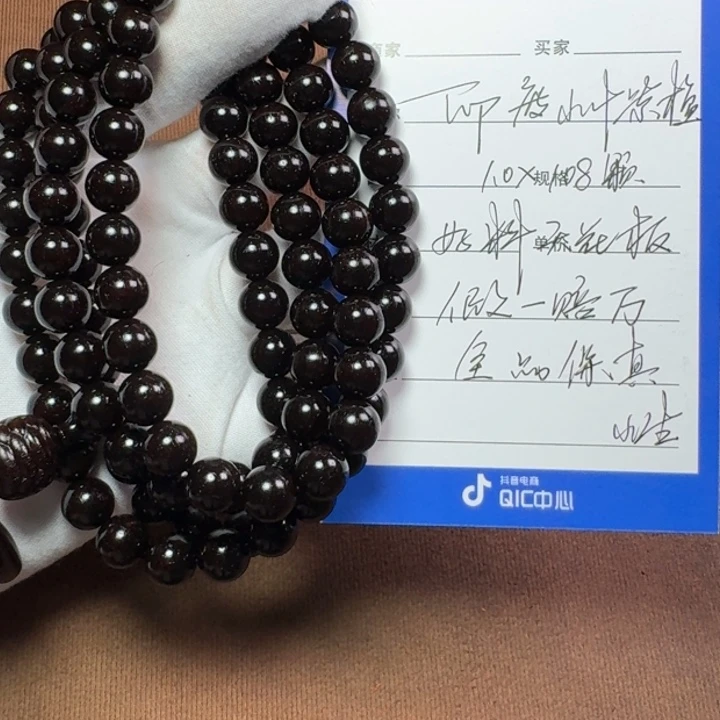 商家 买家
印度小叶紫檀
10×规格108颗
好料 单标 花板
假一赔万
全品保真
抖音电商
QIC中心